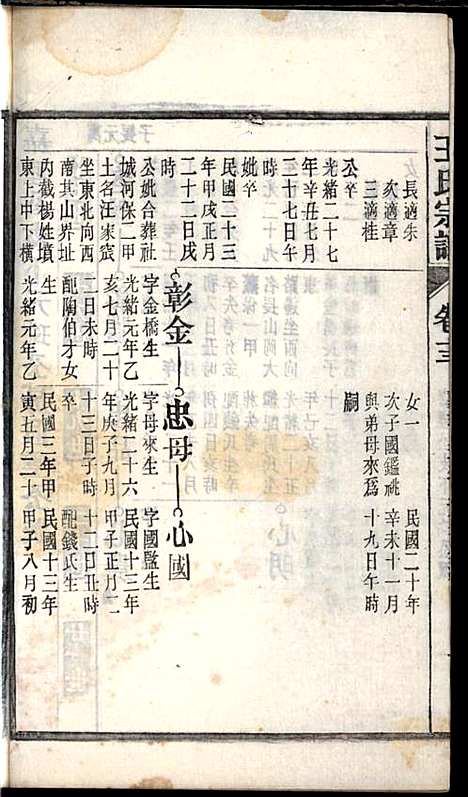 王氏宗譜 卷三
女長適朱
次適章
三適桂
公卒
光緒二十七
年辛丑七月
二十七日午
時
妣卒
民國二十三
年甲戌正月
二十二日戌
時
公妣合葬社
城河保二甲
土名汪家
坐東北向西
南其山界址
丙截楊姓墳
東上中下橫
彰金
字金橋生
光緒元年乙
亥七月二十
二日未時
配陶伯才女
生
光緒元年乙
女一
次子國鑑祧
與弟母來爲
嗣
忠母
字母來生
光緒二十六
年庚子九月
十三日子時
卒
民國三年甲
寅五月二十
民國二十年
辛未十一月
十九日午時
心國
字國監生
民國十三年
甲子正月二
十二日丑時
配錢氏生
民國十三年
甲子八月初